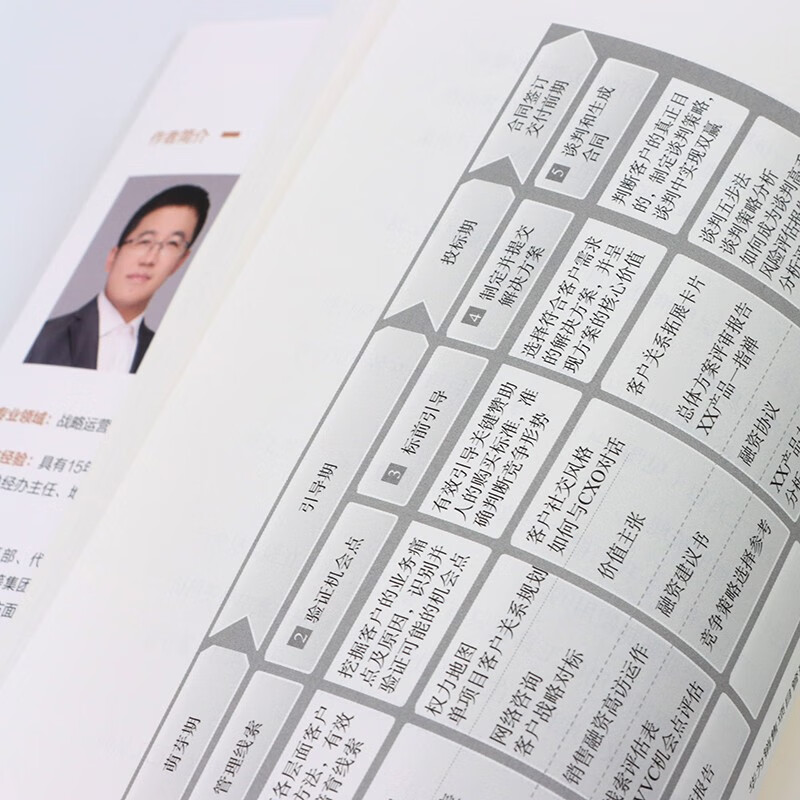 作者简介
专业领域：战略运营
经验：具有15年
经办主任、
部、代
集团
方面
合同签订
交付前期
5 谈判和生成
合同
判断客户的真正目
的，制定谈判策略，
谈判中实现双赢
谈判五步法
谈判策略分析
如何成为谈判高
风险评估报
分析
投标期
4 制定并提交
解决方案
选择符合客户需求
的解决方案，并呈
现方案的核心价值
客户关系拓展卡片
总体方案评审报告
XX产品一指禅
融资协议
XX产品
分析
引导期
3 标前引导
有效引导关键赞助
人的购买标准，准
确判断竞争形势
客户社交风格
如何与CXO对话
价值主张
融资建议书
竞争策略选择参考
2 验证机会点
挖掘客户的业务痛
点及原因，识别并
验证可能的机会点
权力地图
单项目客户关系规划
网络咨询
客户战略对标
销售融资高访运作
线索评估表
VVC机会点评估
报告
萌芽期
管理线索
各层面客户
方法，有效
培育线索